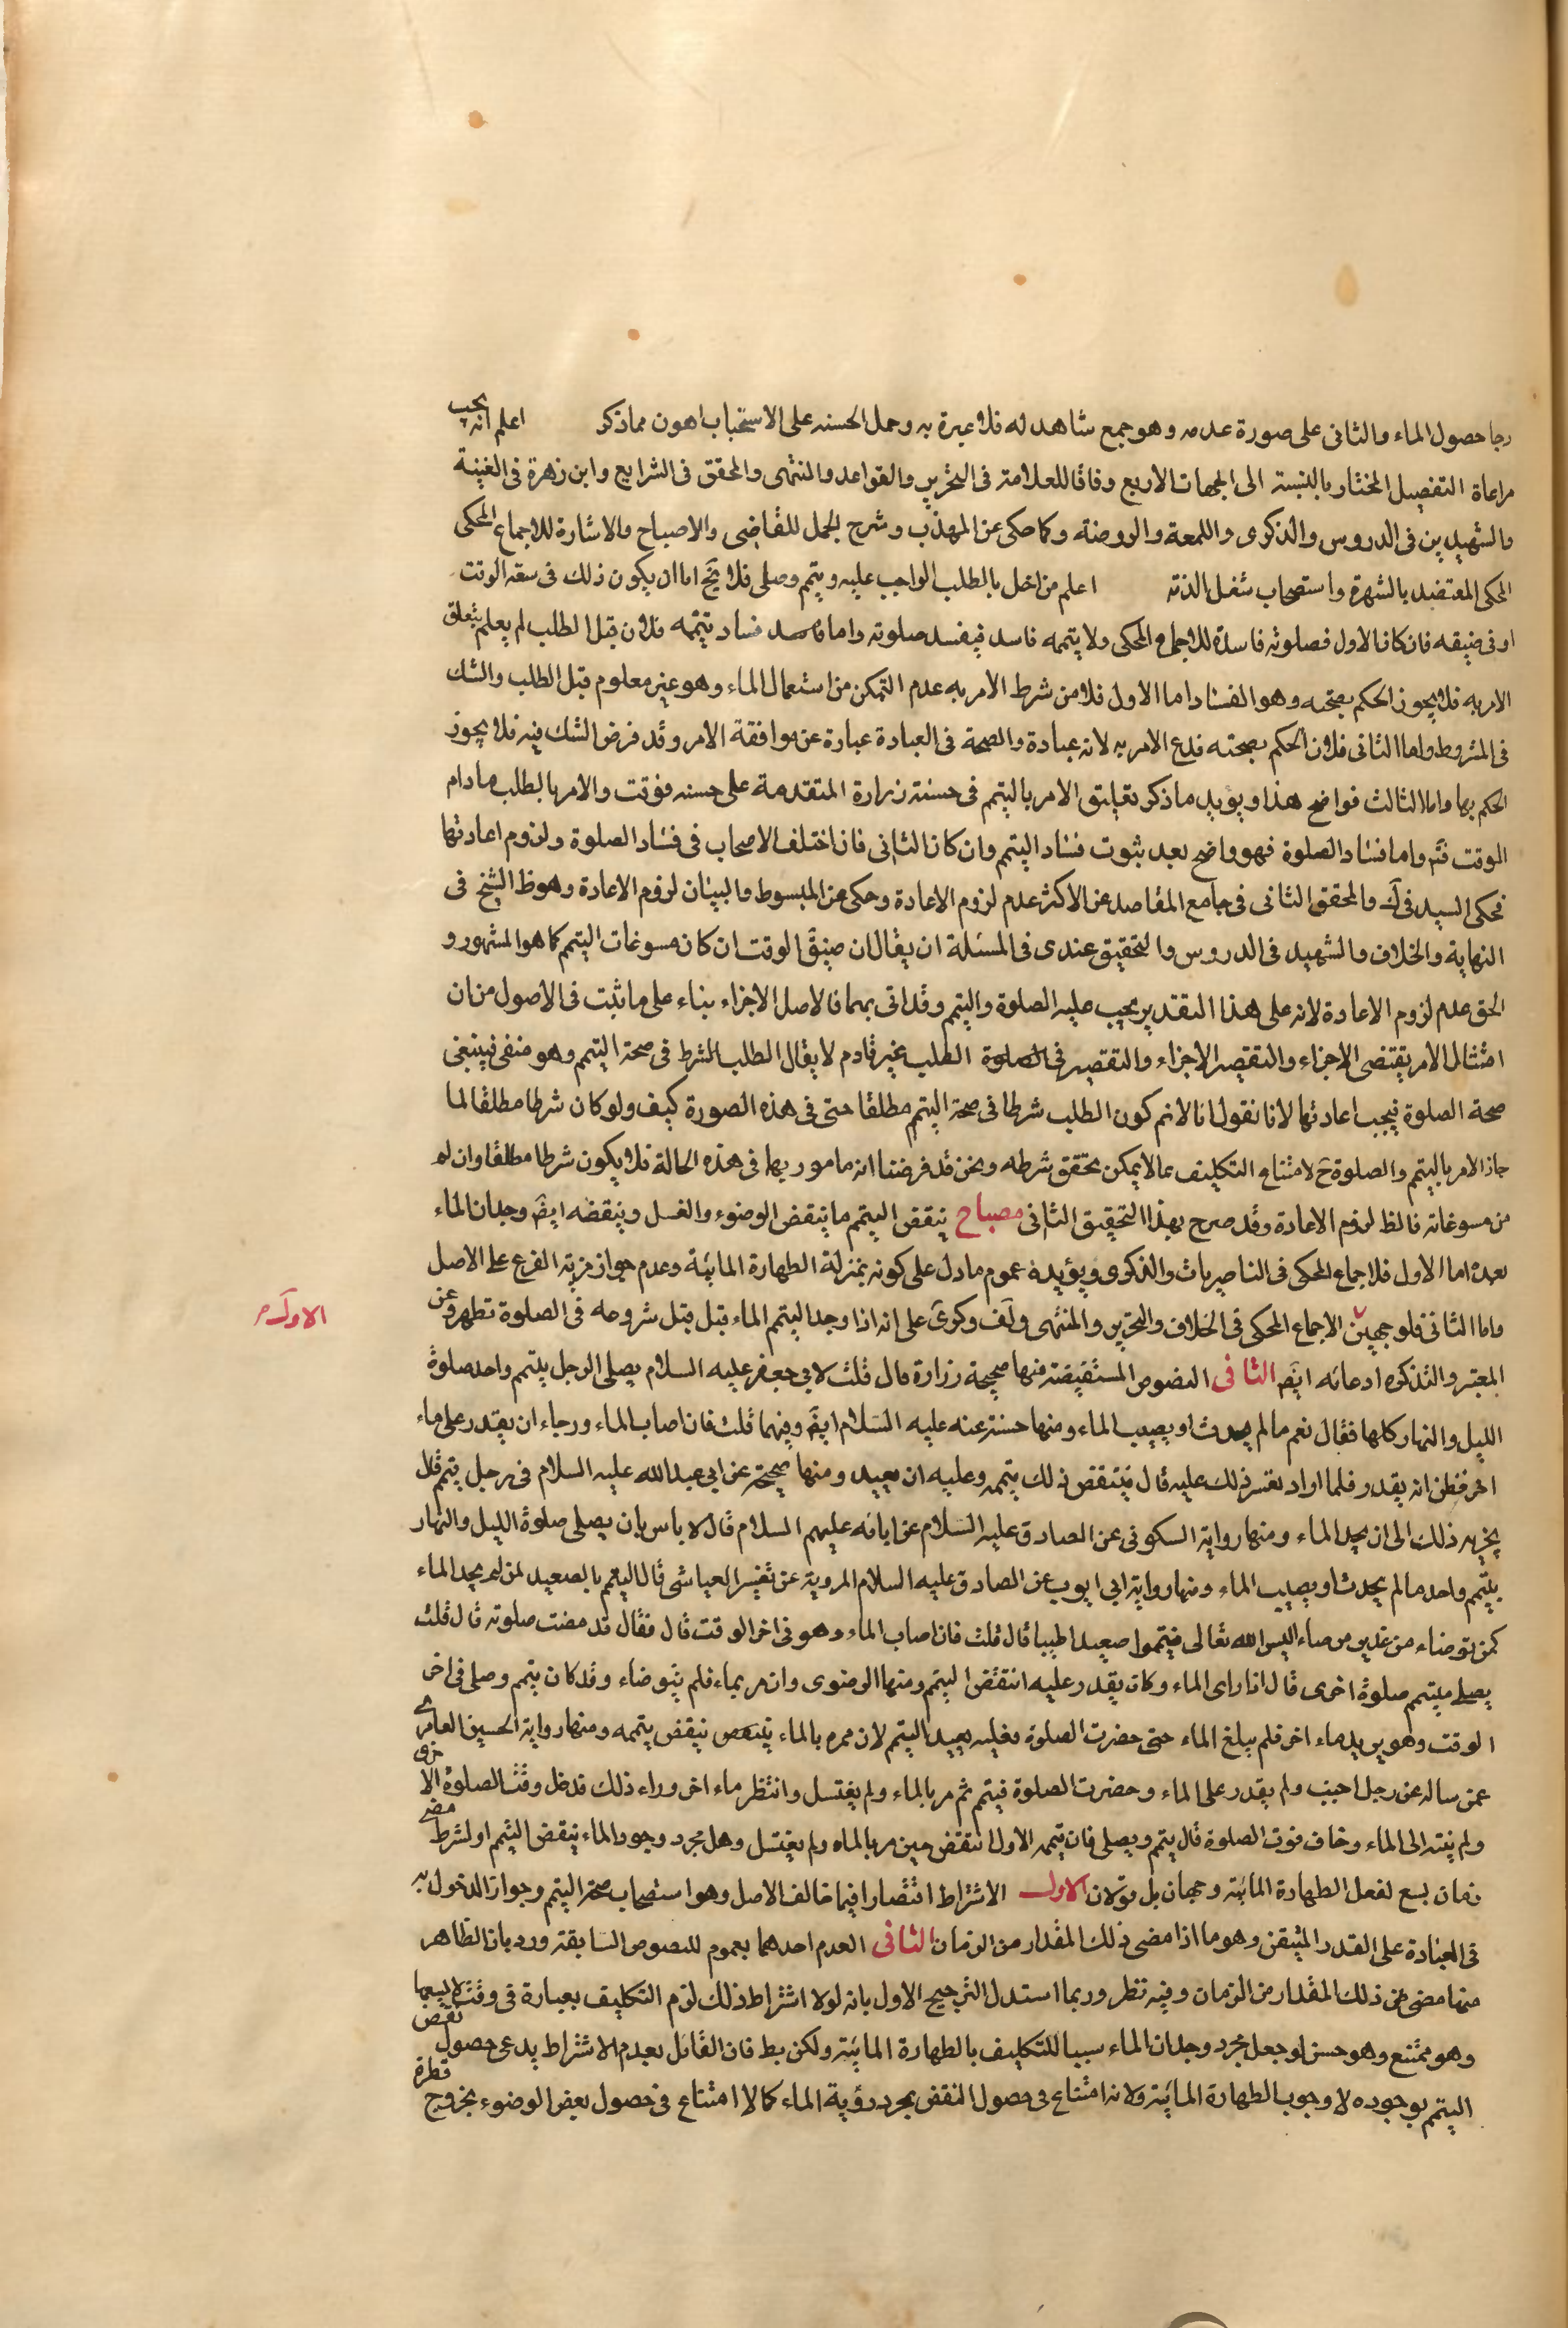 رجا حصول الماء والثانى على صورة عدمه وهو جمع شاهد له فلا عبرة به وحمل الحسنه على الاستحباب اهون مما ذكر اعلم انه يجب
مراعاة التفصيل المختار بالنسبة الى الجهات الاربع وفاقا للعلامة فى التحرير والقواعد والمنتهى والمحقق فى الشرايع وابن زهرة فى الغنية
والشهيدين فى الدروس والذكرى واللمعة والروضة وكما حكى عن المهذب وشرح الجمل للقاضى والاصباح والاشارة للاجماع المحكى
المحكى المعتضد بالشهرة واستصحاب شغل الذمة اعلم من اخل بالطلب الواجب عليه ويتمم وصلى فلا يخ اما ان يكون ذلك فى سعة الوقت
او فى ضيقه فان كان الاول فصلوته فاسدة للاجماع المحكى ولا يتممه فاسد فيفسد صلوته واما فساد تيممه فلان قبل الطلب لم يعلم يتعلق
الامر به فلا يجوز الحكم بصحته وهو الفساد اما الاول فلا من شرط الامر به عدم التمكن من استعمال الماء وهو غير معلوم قبل الطلب والشك
فى المشروط واما الثانى فلان الحكم بصحته فرع الامر به لانه عبادة والصحة فى العبادة عبارة عن موافقة الامر وقد فرض الشك فيه فلا يجوز
الحكم بها واما الثالث فواضح هذا ويؤيد ما ذكر تعليق الامر بالتيمم فى حسنة زرارة المتقدمة على خسنه فوتت والامر بالطلب مادام
الوقت فتم واما فساد الصلوة فهو واضح بعد ثبوت فساد التيمم وان كان الثانى فان اختلف الاصحاب فى فساد الصلوة ولزوم اعادتها
فحكى السيد فى ك والمحقق الثانى فى جامع المقاصد عن الاكثر عدم لزوم الاعادة وحكى عن المبسوط والبيان لزوم الاعادة وهو ظ الشيخ فى
النهاية والخلاف والشهيد فى الدروس والتحقيق عندى فى المسئلة ان يقال ان ضيق الوقت ان كان مسوغات التيمم كما هو المشهور و
الحق عدم لزوم الاعادة لانه على هذا التقدير يجب عليه الصلوة والتيمم وقد اتى بهما فالاصل الاجزاء بناء على ما ثبت فى الاصول من ان
امتثال الامر يقتضى الاجزاء والتقصير الاجزاء والتقصير فى الصلوة الطلب غير قادم لا يقال الطلب الشرط فى صحة التيمم وهو منفى فينبغى
صحة الصلوة فيجب اعادتها لانا نقول انا لانم كون الطلب شرطا فى صحة التيمم مطلقا حتى فى هذه الصورة كيف ولو كان شرطا مطلقا لما
جاز الامر بالتيمم والصلوة ح لامتناع التكليف بما لا يمكن تحقق شرطه ونحن قد فرضنا انه مامور بها فى هذه الحالة فلا يكون شرطا مطلقا وان لم
من مسوغاته فالظ لزوم الاعادة وقد صرح بهذا التحقيق الثانى مصباح ينقض التيمم ما ينقض الوضوء والغسل وينقضه ايضا وجدان الماء
بعده اما الاول فلاجماع المحكى فى الناصريات والذكرى ويؤيده عموم ما دل على كونه بمنزلة الطهارة المائية وعدم جواز مزية الفرع على الاصل
واما الثانى فلوجهين الاجماع المحكى فى الخلاف والتحرير والمنتهى ولف وكرى على انه اذا وجد المتيمم الماء قبل قبل شروعه فى الصلوة تطهر وعن
الاول
المعتبر والتذكره ادعائه ايضا الثانى النصوص المستفيضة منها صحيحة زرارة قال قلت لابى جعفر عليه السلام يصلى الرجل بتيمم واحد صلوة
الليل والنهار كلها فقال نعم ما لم يحدث او يصيب الماء ومنها حسنته عنه عليه السلام ايضا وفيها قلت فان اصاب الماء ورجاء ان يقدر على ماء
اخر فظن انه يقدر فلما اراد تعسر ذلك عليه قال فينتقض ذلك يتممه وعليه ان يعيد ومنها صحيحة عن ابى عبد الله عليه السلام فى رجل يتمم قال
يجزيه ذلك الى ان يجد الماء ومنها رواية السكونى عن الصادق عليه السلام عن ابائه عليهم السلام قال لا باس بان يصلى صلوة الليل والنهار
بتيمم واحد ما لم يحدث او يصيب الماء ومنها رواية ابى ايوب عن الصادق عليه السلام المروية عن تفسير العياشى قال التيمم بالصعيد لمن لم يجد الماء
كمن توضاء من غدير من ماء اليس الله تعالى فيتمموا صعيدا طيبا قال قلت فان اصاب الماء وهو فى اخر الوقت قال فقال قد مضت صلوته قال قلت
يصلى ميتمم صلوة اخرى قال اذا راى الماء وكان يقدر عليه انتقض التيمم ومنها الرضوى وان مر بماء فلم يتوضاء وقد كان يتمم وصلى فى اخر
الوقت وهو يريد ماء اخر فلم يبلغ الماء حتى حضرت الصلوة فعليه يعيد التيمم لان ممره بالماء ينتقض ينقض يتممه ومنها رواية الحسين العامرى
عمن ساله عن رجل اجنب ولم يقدر على الماء وحضرت الصلوة فيتمم ثم مر بالماء ولم يغتسل وانتظر ماء اخر وراء ذلك فدخل وقت الصلوة الاخرى
ولم ينته الى الماء وخاف فوت الصلوة قال يتمم ويصلى فان تيممه الاول انتقض حين مر بالماء ولم يغتسل وهل مجرد وجود الماء ينقض التيمم او لشرط مضى
زمان يسع لفعل الطهارة المائية وجهان بل قولان الاول الاشتراط اقتصارا فيما خالف الاصل وهو استصحاب صحة التيمم وجواز الدخول به
فى العبادة على القدر المتيقن وهو ما اذا مضى ذلك المقدار من الزمان الثانى العدم احدهما بعموم للنصوص السابقة ورد بان الظاهر
منها مضى من ذلك المقدار من الزمان وفيه نظر وربما استدل الترجيح الاول بانه لولا اشتراط ذلك لزم التكليف بعبارة فى وقت لا يسعها
وهو ممتنع وهو حسن لو جعل مجرد وجدان الماء سببا للتكليف بالطهارة المائية ولكن بط فان القائل بعدم الاشتراط يدعى حصول نقض
التيمم بوجوده لا وجوب الطهارة المائية ولانه امتناع فى حصول النقض بمجرد رؤية الماء كما لا امتناع فى حصول بعض الوضوء بخروج قطرة